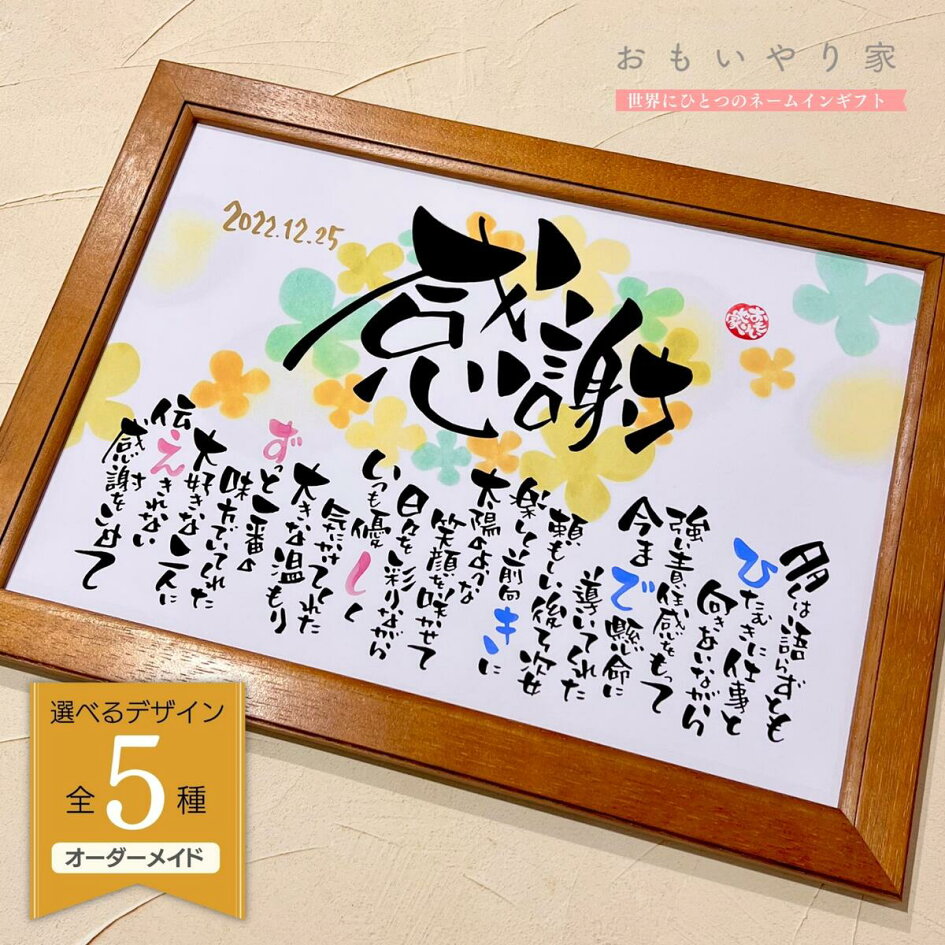 おもいやり家
世界にひとつのネームインギフト
2022.12.25
感謝
おもいやり家
多くは語らずとも
ひたむきに仕事と
向きあいながら
強い責任感をもって
今まで懸命に
導いてくれた
頼もしい後ろ姿
楽しく前向きに
太陽のような
笑顔を咲かせて
日々を彩りながら
いつも優しく
気にかけてくれた
大きな温もり
ずっと一番の
味方でいてくれた
大好きな二人に
伝えきれない
感謝を込めて
選べるデザイン
全5種
オーダーメイド